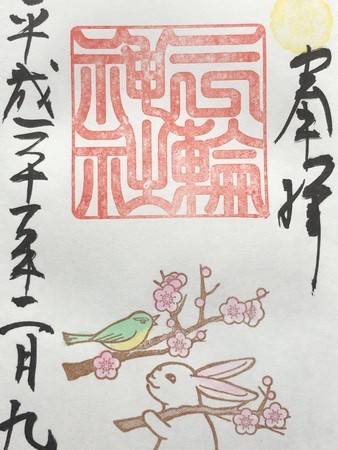 奉拝
三輪
神社
平成三十一年二月九